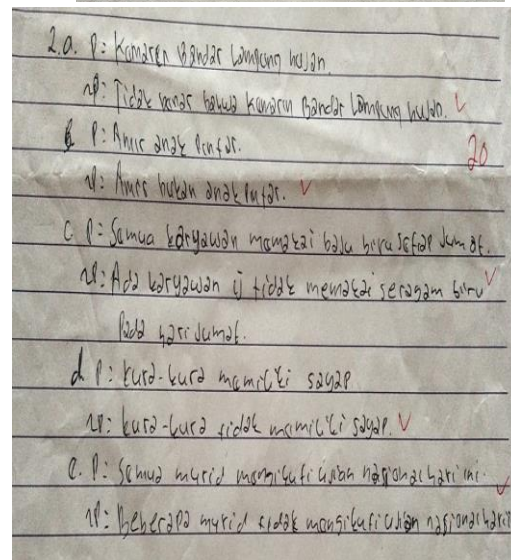 2.a. P: Kemaren Bandar Lampung hujan.
~P: Tidak benar bahwa kemaren Bandar Lampung hujan. ✓
b P: Amir anak Pintar.
20
~P: Amir bukan anak Pintar. ✓
C. P: Semua karyawan memakai baju biru setiap Jumat.
~P: Ada karyawan yg tidak memakai seragam biru ✓
Pada hari Jumat.
d. P: kura-kura memiliki sayap
~P: kura-kura tidak memiliki sayap. ✓
e. P: Semua murid mengikuti ujian nasional hari ini. ✓
~P: Beberapa murid tidak mengikuti ujian nasional hari